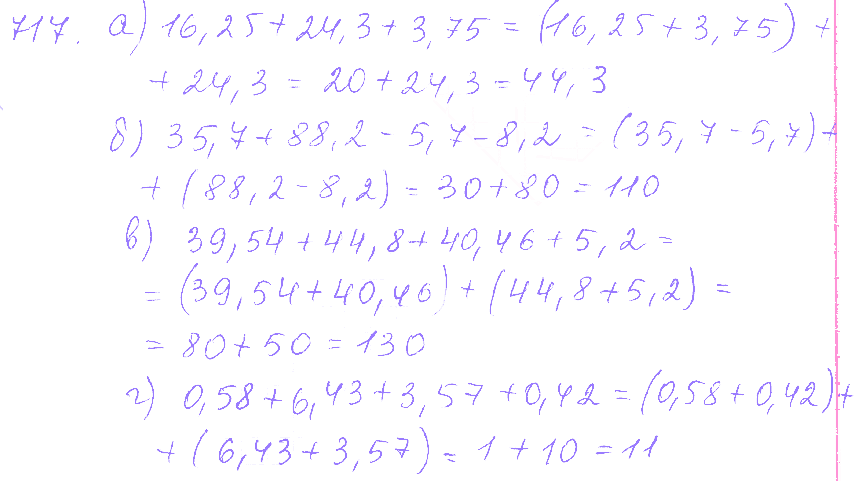 717. а) 16,25 + 24,3 + 3,75 = (16,25 + 3,75) +
+ 24,3 = 20 + 24,3 = 44,3
б) 35,7 + 88,2 - 5,7 - 8,2 = (35,7 - 5,7) +
+ (88,2 - 8,2) = 30 + 80 = 110
в) 39,54 + 44,8 + 40,46 + 5,2 =
= (39,54 + 40,46) + (44,8 + 5,2) =
= 80 + 50 = 130
г) 0,58 + 6,43 + 3,57 + 0,42 = (0,58 + 0,42) +
+ (6,43 + 3,57) = 1 + 10 = 11